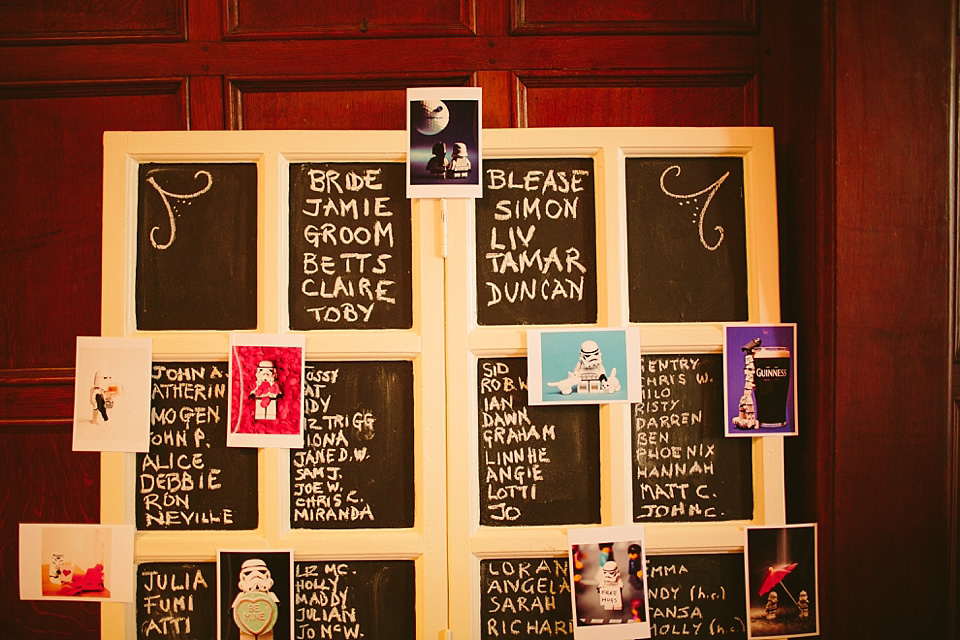 BRIDE
JAMIE
GROOM
BETTS
CLAIRE
TOBY
BLEASE
SIMON
LIV
TAMAR
DUNCAN
JOHN A.
ATHERIN
IMOGEN
JOHN P.
ALICE
DEBBIE
RON
NEVILLE
IZ TRIGG
IONA
JANE D.W.
SAM J.
JOE W.
CHRIS C.
MIRANDA
SID
ROB W
IAN
DAWN
GRAHAM
LINNHE
ANGIE
LOTTI
JO
GENTRY
CHRIS W.
MILO
RISTY
DARREN
BEN
PHOENIX
HANNAH
MATT C.
JOHN C.
GUINNESS
JULIA
FUMI
ATTI
BE
MINE
LIZ MC.
HOLLY
MADDY
JULIAN
JO MCW.
LORAN
ANGELA
SARAH
RICHARD
FREE
HUGS
EMMA
NDY (h.c.)
TANJA
MOLLY (h.c.)